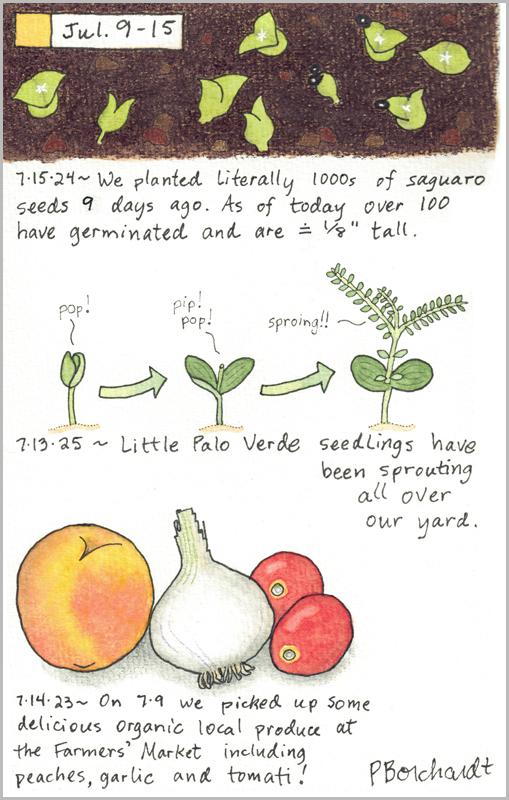 Jul. 9-15
7.15.24~ We planted literally 1000s of saguaro
seeds 9 days ago. As of today over 100
have germinated and are ≐ 1/8" tall.
pop!
pip!
pop!
sproing!!
7.13.25 ~ Little Palo Verde seedlings have
been sprouting
all over
our yard.
7.14.23~ On 7.9 we picked up some
delicious organic local produce at
the Farmers' Market including
peaches, garlic and tomati!
PBorchardt